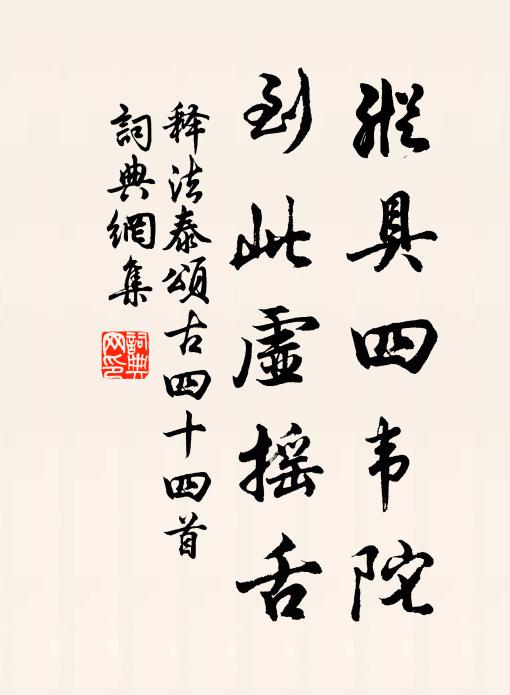 縱具四韦陀
到此虛摇舌
释法泰頌古四十四首
詞典網集
詞典网印